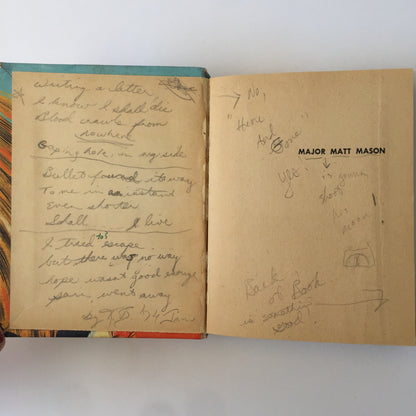 writing a letter
I know I shall die
Blood crawls from
nowhere
Gaping hole in my side
Bullet found its way
To me in an instand
Even shorter
Shall I live
I tried to escape
but there was no way
hope wasn't good enough
pain, went away
by K.D. '74 Jan
No,
"Here
And
Gone"
MAJOR MATT MASON
Yet
is gonna
shoot
his
moon!
Back
of Book
is something
good!